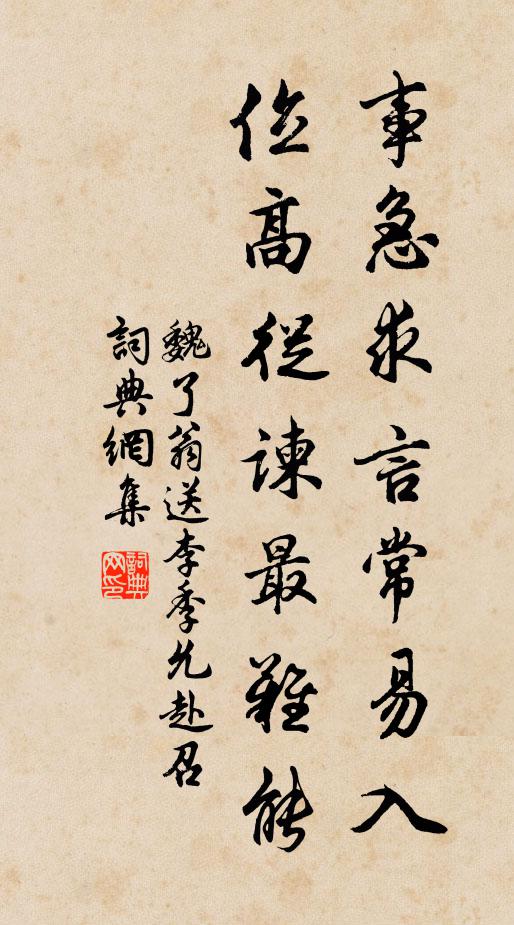 事急求言常易入
位高從諫最難能
魏了翁送李季允赴召
詞典網集
詞典网印